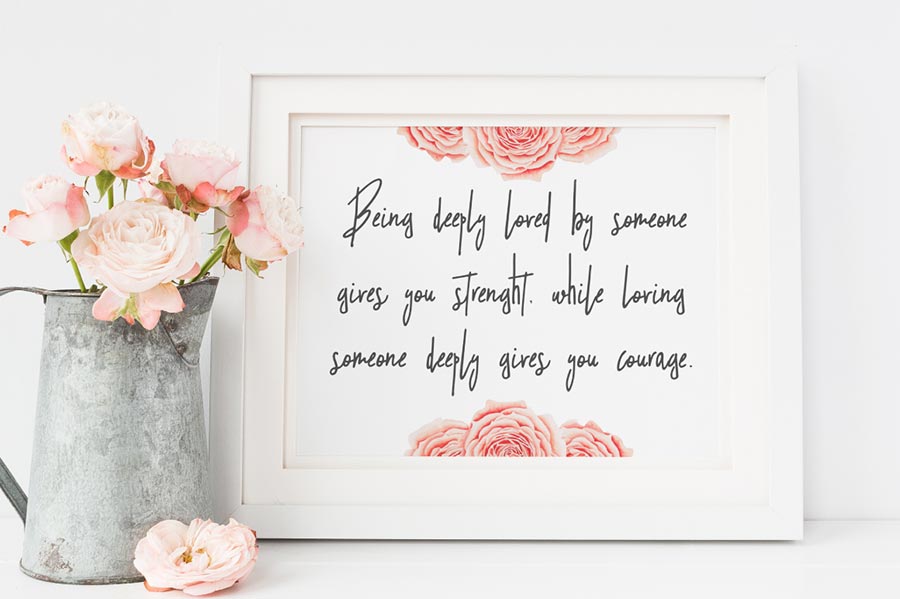 Being deeply loved by someone
gives you strenght, while loving
someone deeply gives you courage.